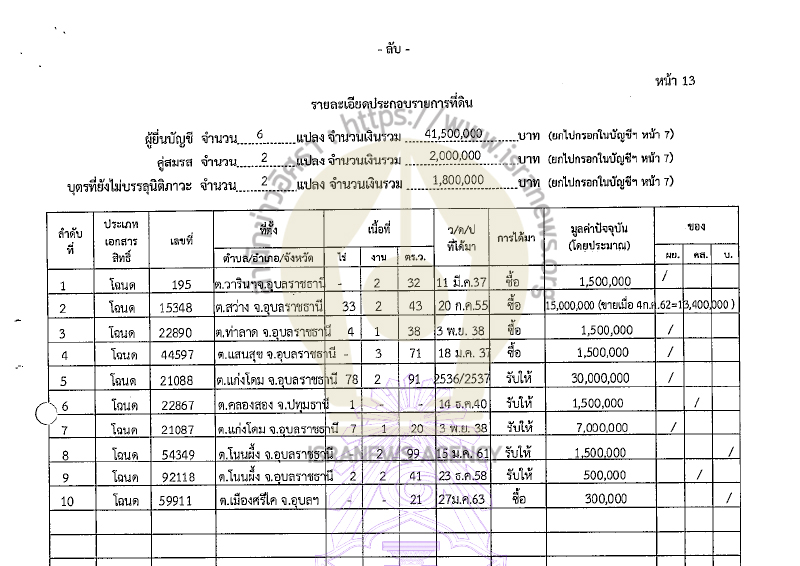 - ลับ -
หน้า 13
รายละเอียดประกอบรายการที่ดิน
ผู้ยื่นบัญชี จำนวน 6 แปลง จำนวนเงินรวม 41,500,000 บาท (ยกไปกรอกในบัญชีฯ หน้า 7)
คู่สมรส จำนวน 2 แปลง จำนวนเงินรวม 2,000,000 บาท (ยกไปกรอกในบัญชีฯ หน้า 7)
บุตรที่ยังไม่บรรลุนิติภาวะ จำนวน 2 แปลง จำนวนเงินรวม 1,800,000 บาท (ยกไปกรอกในบัญชีฯ หน้า 7)
ลำดับที่ ประเภทเอกสารสิทธิ์ เลขที่ ที่ตั้ง เนื้อที่ ว/ด/ป ที่ได้มา การได้มา มูลค่าปัจจุบัน (โดยประมาณ) ของ
ตำบล/อำเภอ/จังหวัด ไร่ งาน ตร.ว. ผย. คส. บ.
1 โฉนด 195 ต.วารินฯ จ.อุบลราชธานี - 2 32 11 มี.ค.37 ซื้อ 1,500,000 /
2 โฉนด 15348 ต.สว่าง จ.อุบลราชธานี 33 2 43 20 ก.ค.55 ซื้อ 15,000,000 (ขายเมื่อ 4ก.ค.62=13,400,000 )
3 โฉนด 22890 ต.ท่าลาด จ.อุบลราชธานี 4 1 38 3 พ.ย. 38 ซื้อ 1,500,000 /
4 โฉนด 44597 ต.แสนสุข จ.อุบลราชธานี - 3 71 18 ม.ค. 37 ซื้อ 1,500,000 /
5 โฉนด 21088 ต.แก่งโดม จ.อุบลราชธานี 78 2 91 2536/2537 รับให้ 30,000,000 /
6 โฉนด 22867 ต.คลองสอง จ.ปทุมธานี 1 - - 14 ธ.ค.40 รับให้ 1,500,000 /
7 โฉนด 21087 ต.แก่งโดม จ.อุบลราชธานี 7 1 20 3 พ.ย. 38 รับให้ 7,000,000 /
8 โฉนด 54349 ต.โนนผึ้ง จ.อุบลราชธานี 2 99 15 ม.ค. 61 รับให้ 1,500,000 /
9 โฉนด 92118 ต.โนนผึ้ง จ.อุบลราชธานี 2 2 41 23 ธ.ค.58 รับให้ 500,000 /
10 โฉนด 59911 ต.เมืองศรีไค จ.อุบลฯ - - 21 27ม.ค.63 ซื้อ 300,000 /
สำนักข่าวอิศรา https://www.isranews.org
ISRANEWS AGENCY